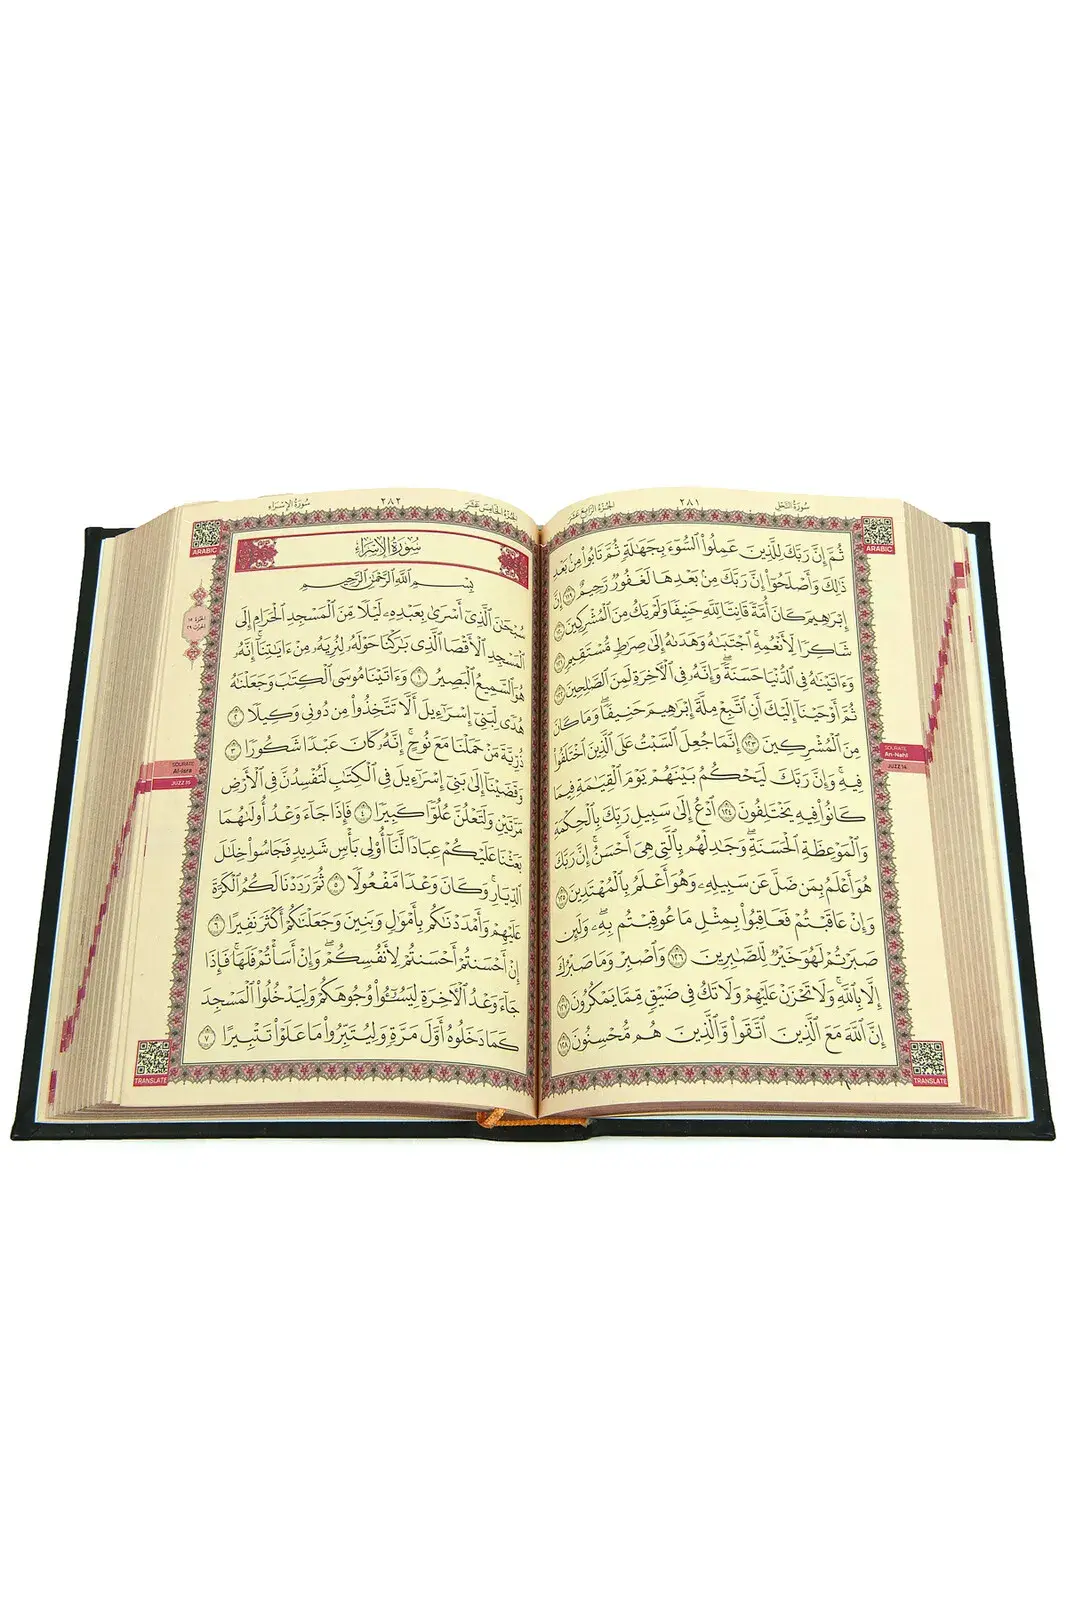 سُورَةُ النَّحْل
٢٨١
الجُزْءُ الرَّابِعَ عَشَرَ
ARABIC
ثُمَّ إِنَّ رَبَّكَ لِلَّذِينَ عَمِلُوا۟ ٱلسُّوٓءَ بِجَهَٰلَةٍ ثُمَّ تَابُوا۟ مِنۢ بَعْدِ
ذَٰلِكَ وَأَصْلَحُوٓا۟ إِنَّ رَبَّكَ مِنۢ بَعْدِهَا لَغَفُورٌ رَّحِيمٌ ١١٩ إِنَّ
إِبْرَٰهِيمَ كَانَ أُمَّةً قَانِتًا لِّلَّهِ حَنِيفًا وَلَمْ يَكُ مِنَ ٱلْمُشْرِكِينَ ١٢٠
شَاكِرًا لِّأَنْعُمِهِ ۚ ٱجْتَبَىٰهُ وَهَدَىٰهُ إِلَىٰ صِرَٰطٍ مُّسْتَقِيمٍ ١٢١
وَءَاتَيْنَٰهُ فِى ٱلدُّنْيَا حَسَنَةً ۖ وَإِنَّهُۥ فِى ٱلْءَاخِرَةِ لَمِنَ ٱلصَّٰلِحِينَ ١٢٢
ثُمَّ أَوْحَيْنَآ إِلَيْكَ أَنِ ٱتَّبِعْ مِلَّةَ إِبْرَٰهِيمَ حَنِيفًا ۖ وَمَا كَانَ
مِنَ ٱلْمُشْرِكِينَ ١٢٣ إِنَّمَا جُعِلَ ٱلسَّبْتُ عَلَى ٱلَّذِينَ ٱخْتَلَفُوا۟
فِيهِ ۚ وَإِنَّ رَبَّكَ لَيَحْكُمُ بَيْنَهُمْ يَوْمَ ٱلْقِيَٰمَةِ فِيمَا
كَانُوا۟ فِيهِ يَخْتَلِفُونَ ١٢٤ ٱدْعُ إِلَىٰ سَبِيلِ رَبِّكَ بِٱلْحِكْمَةِ
وَٱلْمَوْعِظَةِ ٱلْحَسَنَةِ ۖ وَجَٰدِلْهُم بِٱلَّتِى هِىَ أَحْسَنُ ۚ إِنَّ رَبَّكَ
هُوَ أَعْلَمُ بِمَن ضَلَّ عَن سَبِيلِهِۦ ۖ وَهُوَ أَعْلَمُ بِٱلْمُهْتَدِينَ ١٢٥
وَإِنْ عَاقَبْتُمْ فَعَاقِبُوا۟ بِمِثْلِ مَا عُوقِبْتُم بِهِۦ ۖ وَلَئِن
صَبَرْتُمْ لَهُوَ خَيْرٌ لِّلصَّٰبِرِينَ ١٢٦ وَٱصْبِرْ وَمَا صَبْرُكَ
إِلَّا بِٱللَّهِ ۚ وَلَا تَحْزَنْ عَلَيْهِمْ وَلَا تَكُ فِى ضَيْقٍ مِّمَّا يَمْكُرُونَ ١٢٧
إِنَّ ٱللَّهَ مَعَ ٱلَّذِينَ ٱتَّقَوا۟ وَّٱلَّذِينَ هُم مُّحْسِنُونَ ١٢٨
SOURATE
An-Nahl
JUZZ 14
TRANSLATE
الجُزْءُ الخَامِسَ عَشَرَ
٢٨٢
سُورَةُ الإِسْرَاءِ
ARABIC
سُورَةُ الإِسْرَاءِ
بِسْمِ ٱللَّهِ ٱلرَّحْمَٰنِ ٱلرَّحِيمِ
سُبْحَٰنَ ٱلَّذِىٓ أَسْرَىٰ بِعَبْدِهِۦ لَيْلًا مِّنَ ٱلْمَسْجِدِ ٱلْحَرَامِ إِلَى
ٱلْمَسْجِدِ ٱلْأَقْصَا ٱلَّذِى بَٰرَكْنَا حَوْلَهُۥ لِنُرِيَهُۥ مِنْ ءَايَٰتِنَآ ۚ إِنَّهُۥ
هُوَ ٱلسَّمِيعُ ٱلْبَصِيرُ ١ وَءَاتَيْنَا مُوسَى ٱلْكِتَٰبَ وَجَعَلْنَٰهُ
هُدًى لِّبَنِىٓ إِسْرَٰٓءِيلَ أَلَّا تَتَّخِذُوا۟ مِن دُونِى وَكِيلًا ٢
ذُرِّيَّةَ مَنْ حَمَلْنَا مَعَ نُوحٍ ۚ إِنَّهُۥ كَانَ عَبْدًا شَكُورًا ٣
وَقَضَيْنَآ إِلَىٰ بَنِىٓ إِسْرَٰٓءِيلَ فِى ٱلْكِتَٰبِ لَتُفْسِدُنَّ فِى ٱلْأَرْضِ
مَرَّتَيْنِ وَلَتَعْلُنَّ عُلُوًّا كَبِيرًا ٤ فَإِذَا جَآءَ وَعْدُ أُولَىٰهُمَا
بَعَثْنَا عَلَيْكُمْ عِبَادًا لَّنَآ أُو۟لِى بَأْسٍ شَدِيدٍ فَجَاسُوا۟ خِلَٰلَ
ٱلدِّيَارِ ۚ وَكَانَ وَعْدًا مَّفْعُولًا ٥ ثُمَّ رَدَدْنَا لَكُمُ ٱلْكَرَّةَ
عَلَيْهِمْ وَأَمْدَدْنَٰكُم بِأَمْوَٰلٍ وَبَنِينَ وَجَعَلْنَٰكُمْ أَكْثَرَ نَفِيرًا ٦
إِنْ أَحْسَنتُمْ أَحْسَنتُمْ لِأَنفُسِكُمْ ۖ وَإِنْ أَسَأْتُمْ فَلَهَا ۚ فَإِذَا
جَآءَ وَعْدُ ٱلْءَاخِرَةِ لِيَسُـۥٓـُٔوا۟ وُجُوهَكُمْ وَلِيَدْخُلُوا۟ ٱلْمَسْجِدَ
كَمَا دَخَلُوهُ أَوَّلَ مَرَّةٍ وَلِيُتَبِّرُوا۟ مَا عَلَوْا۟ تَتْبِيرًا ٧
الجُزْءُ ١٥
الحِزْبُ ٢٩
SOURATE
Al-Isra
JUZZ 15
TRANSLATE